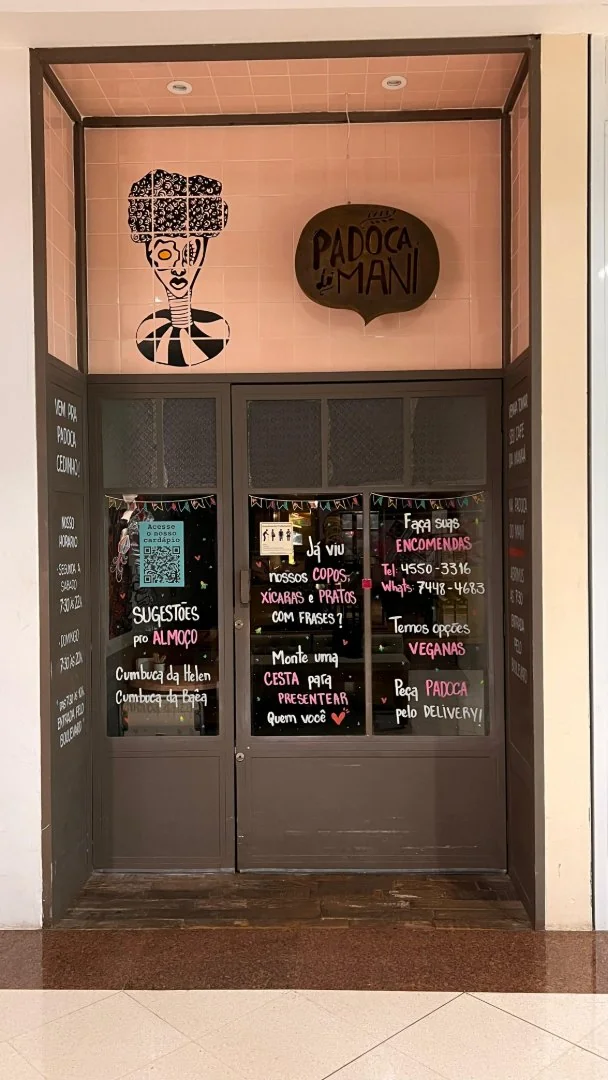 PADOCA
do MANÍ
VEM PRA
PADOCA
CEDINHO!
NOSSO
HORÁRIO
SEGUNDA A
SÁBADO
7:30 ÀS 22H
DOMINGO
7:30 ÀS 20H
ENTRADA PELO
BOULEVARD
Acesse
o nosso
cardápio
SUGESTÕES
pro ALMOÇO
Cumbuca da Helen
Cumbuca da Baêa
Já viu
nossos COPOS,
XÍCARAS e PRATOS
COM FRASES?
Monte uma
CESTA para
PRESENTEAR
Quem você
Faça suas
ENCOMENDAS
Tel: 4550-3316
Whats: 7448-4683
Temos opções
VEGANAS
Peça PADOCA
pelo DELIVERY!
VENHA TOMAR
SEU CAFÉ
DA MANHÃ
NA PADOCA
DO MANÍ
ABRIMOS
ÀS 7:30
ENTRADA
PELO
BOULEVARD